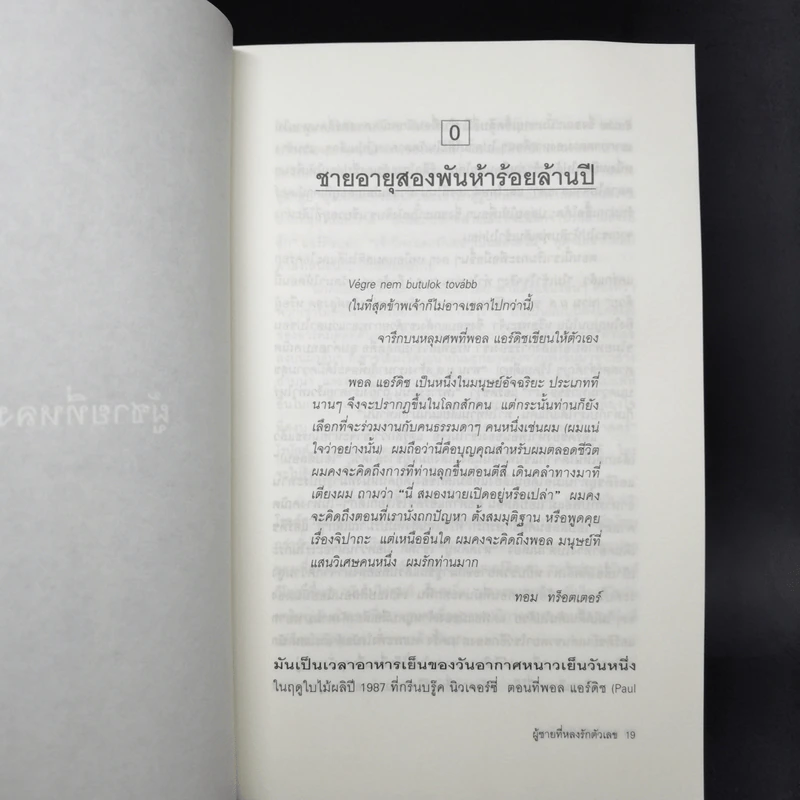 0
ชายอายุสองพันห้าร้อยล้านปี
Végre nem butulok tovább
(ในที่สุดข้าพเจ้าก็ไม่อาจเขลาไปกว่านี้)
จารึกบนหลุมศพที่พอล แอร์ดิชเขียนให้ตัวเอง
พอล แอร์ดิช เป็นหนึ่งในมนุษย์อัจฉริยะ ประเภทที่
นานๆ จึงจะปรากฏขึ้นในโลกสักคน แต่กระนั้นท่านก็ยัง
เลือกที่จะร่วมงานกับคนธรรมดาๆ คนหนึ่งเช่นผม (ผมแน่
ใจว่าอย่างนั้น) ผมถือว่านี่คือบุญคุณสำหรับผมตลอดชีวิต
ผมคงจะคิดถึงการที่ท่านลุกขึ้นตอนตีสี่ เดินคลำทางมาที่
เตียงผม ถามว่า “นี่ สมองนายเปิดอยู่หรือเปล่า” ผมคง
จะคิดถึงตอนที่เรานั่งถกปัญหา ตั้งสมมุติฐาน หรือพูดคุย
เรื่องจิปาถะ แต่เหนืออื่นใด ผมคงจะคิดถึงพอล มนุษย์ที่
แสนวิเศษคนหนึ่ง ผมรักท่านมาก
ทอม ทร็อตเตอร์
มันเป็นเวลาอาหารเย็นของวันอากาศหนาวเย็นวันหนึ่ง
ในฤดูใบไม้ผลิปี 1987 ที่กรีนบรู๊ค นิวเจอร์ซี่ ตอนที่พอล แอร์ดิช (Paul
ผู้ชายที่หลงรักตัวเลข 19